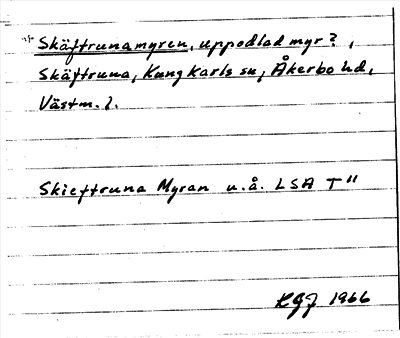 * Skäftrunamyren, uppodlad myr?,
Skäftruna, Kungkarls sn, Åkerbo hd,
Västm. l.
Skieftruna Myran u.å. LSA T"
KGJ 1966